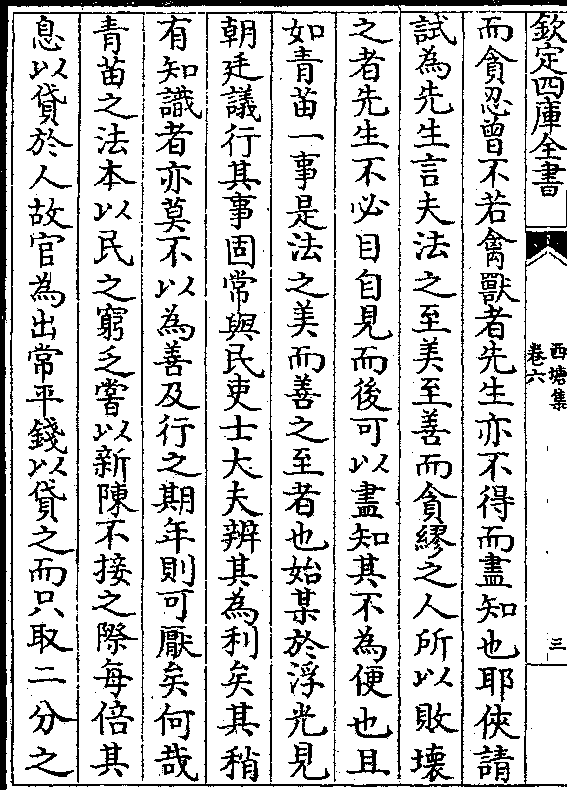 欽定四庫全書
西塘集
卷六
三
而貪忍曾不若禽獸者先生亦不得而盡知也耶俠請
試為先生言夫法之至美至善而貪繆之人所以敗壞
之者先生不必目自見而後可以盡知其不為便也且
如青苗一事是法之美而善之至者也始某於浮光見
朝廷議行其事固常與民吏士大夫辨其為利矣其稍
有知識者亦莫不以為善及行之期年則可厭矣何哉
青苗之法本以民之窮乏嘗以新陳不接之際每倍其
息以貸於人故官為出常平錢以貸之而只取二分之